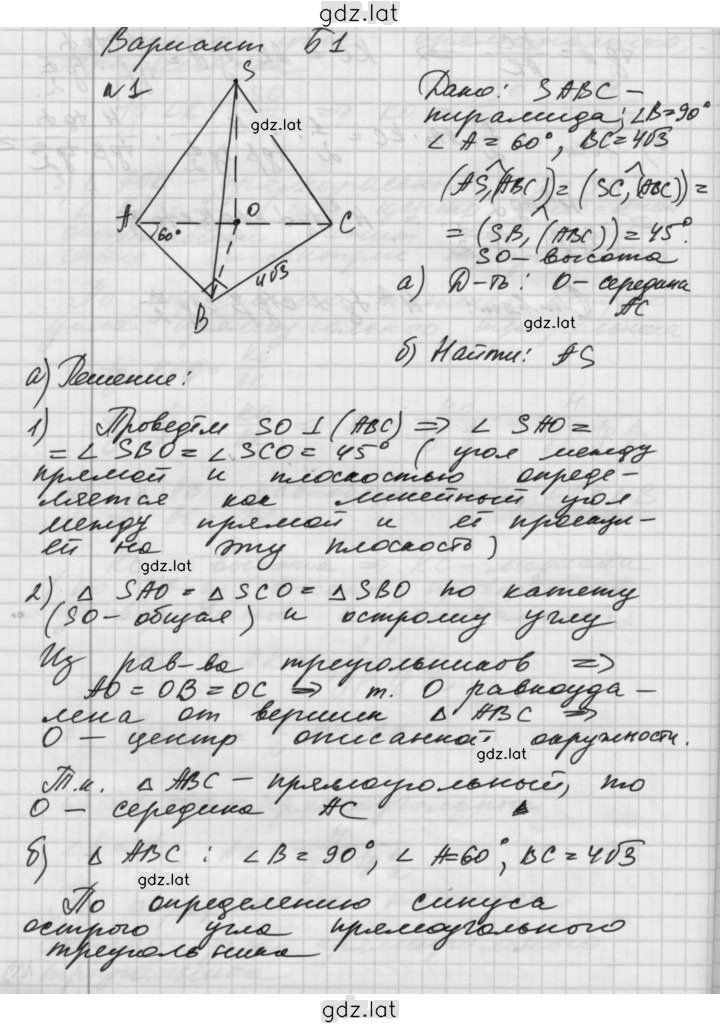 gdz.lat
Вариант Б1
№1
S
gdz.lat
A
60°
O
C
4√3
B
Дано: SABC –
пирамида; ∠B=90°
∠ A = 60°, BC=4√3
(AS,^(ABC)) = (SC,^(ABC)) =
= (SB,^(ABC)) = 45°.
SO – высота
а) Д-ть: O – середина
AC
gdz.lat
б) Найти: AS
а) Решение:
1) Проведём SO ⊥ (ABC) => ∠ SAO =
= ∠ SBO = ∠ SCO = 45° ( угол между
прямой и плоскостью опреде-
ляется как линейный угол
между прямой и её проекци-
ей на эту плоскость)
gdz.lat
2) △ SAO = △ SCO = △ SBO по катету
(SO – общая) и острому углу
Из рав-ва треугольников =>
AO = OB = OC => т. O равноуда-
лена от вершин △ ABC =>
O – центр описанной окружности.
gdz.lat
Т.к. △ ABC – прямоугольный, то
O – середина AC ▲
б) △ ABC : ∠B = 90°, ∠ A=60°, BC = 4√3
gdz.lat
По определению синуса
острого угла прямоугольного
треугольника
gdz.lat